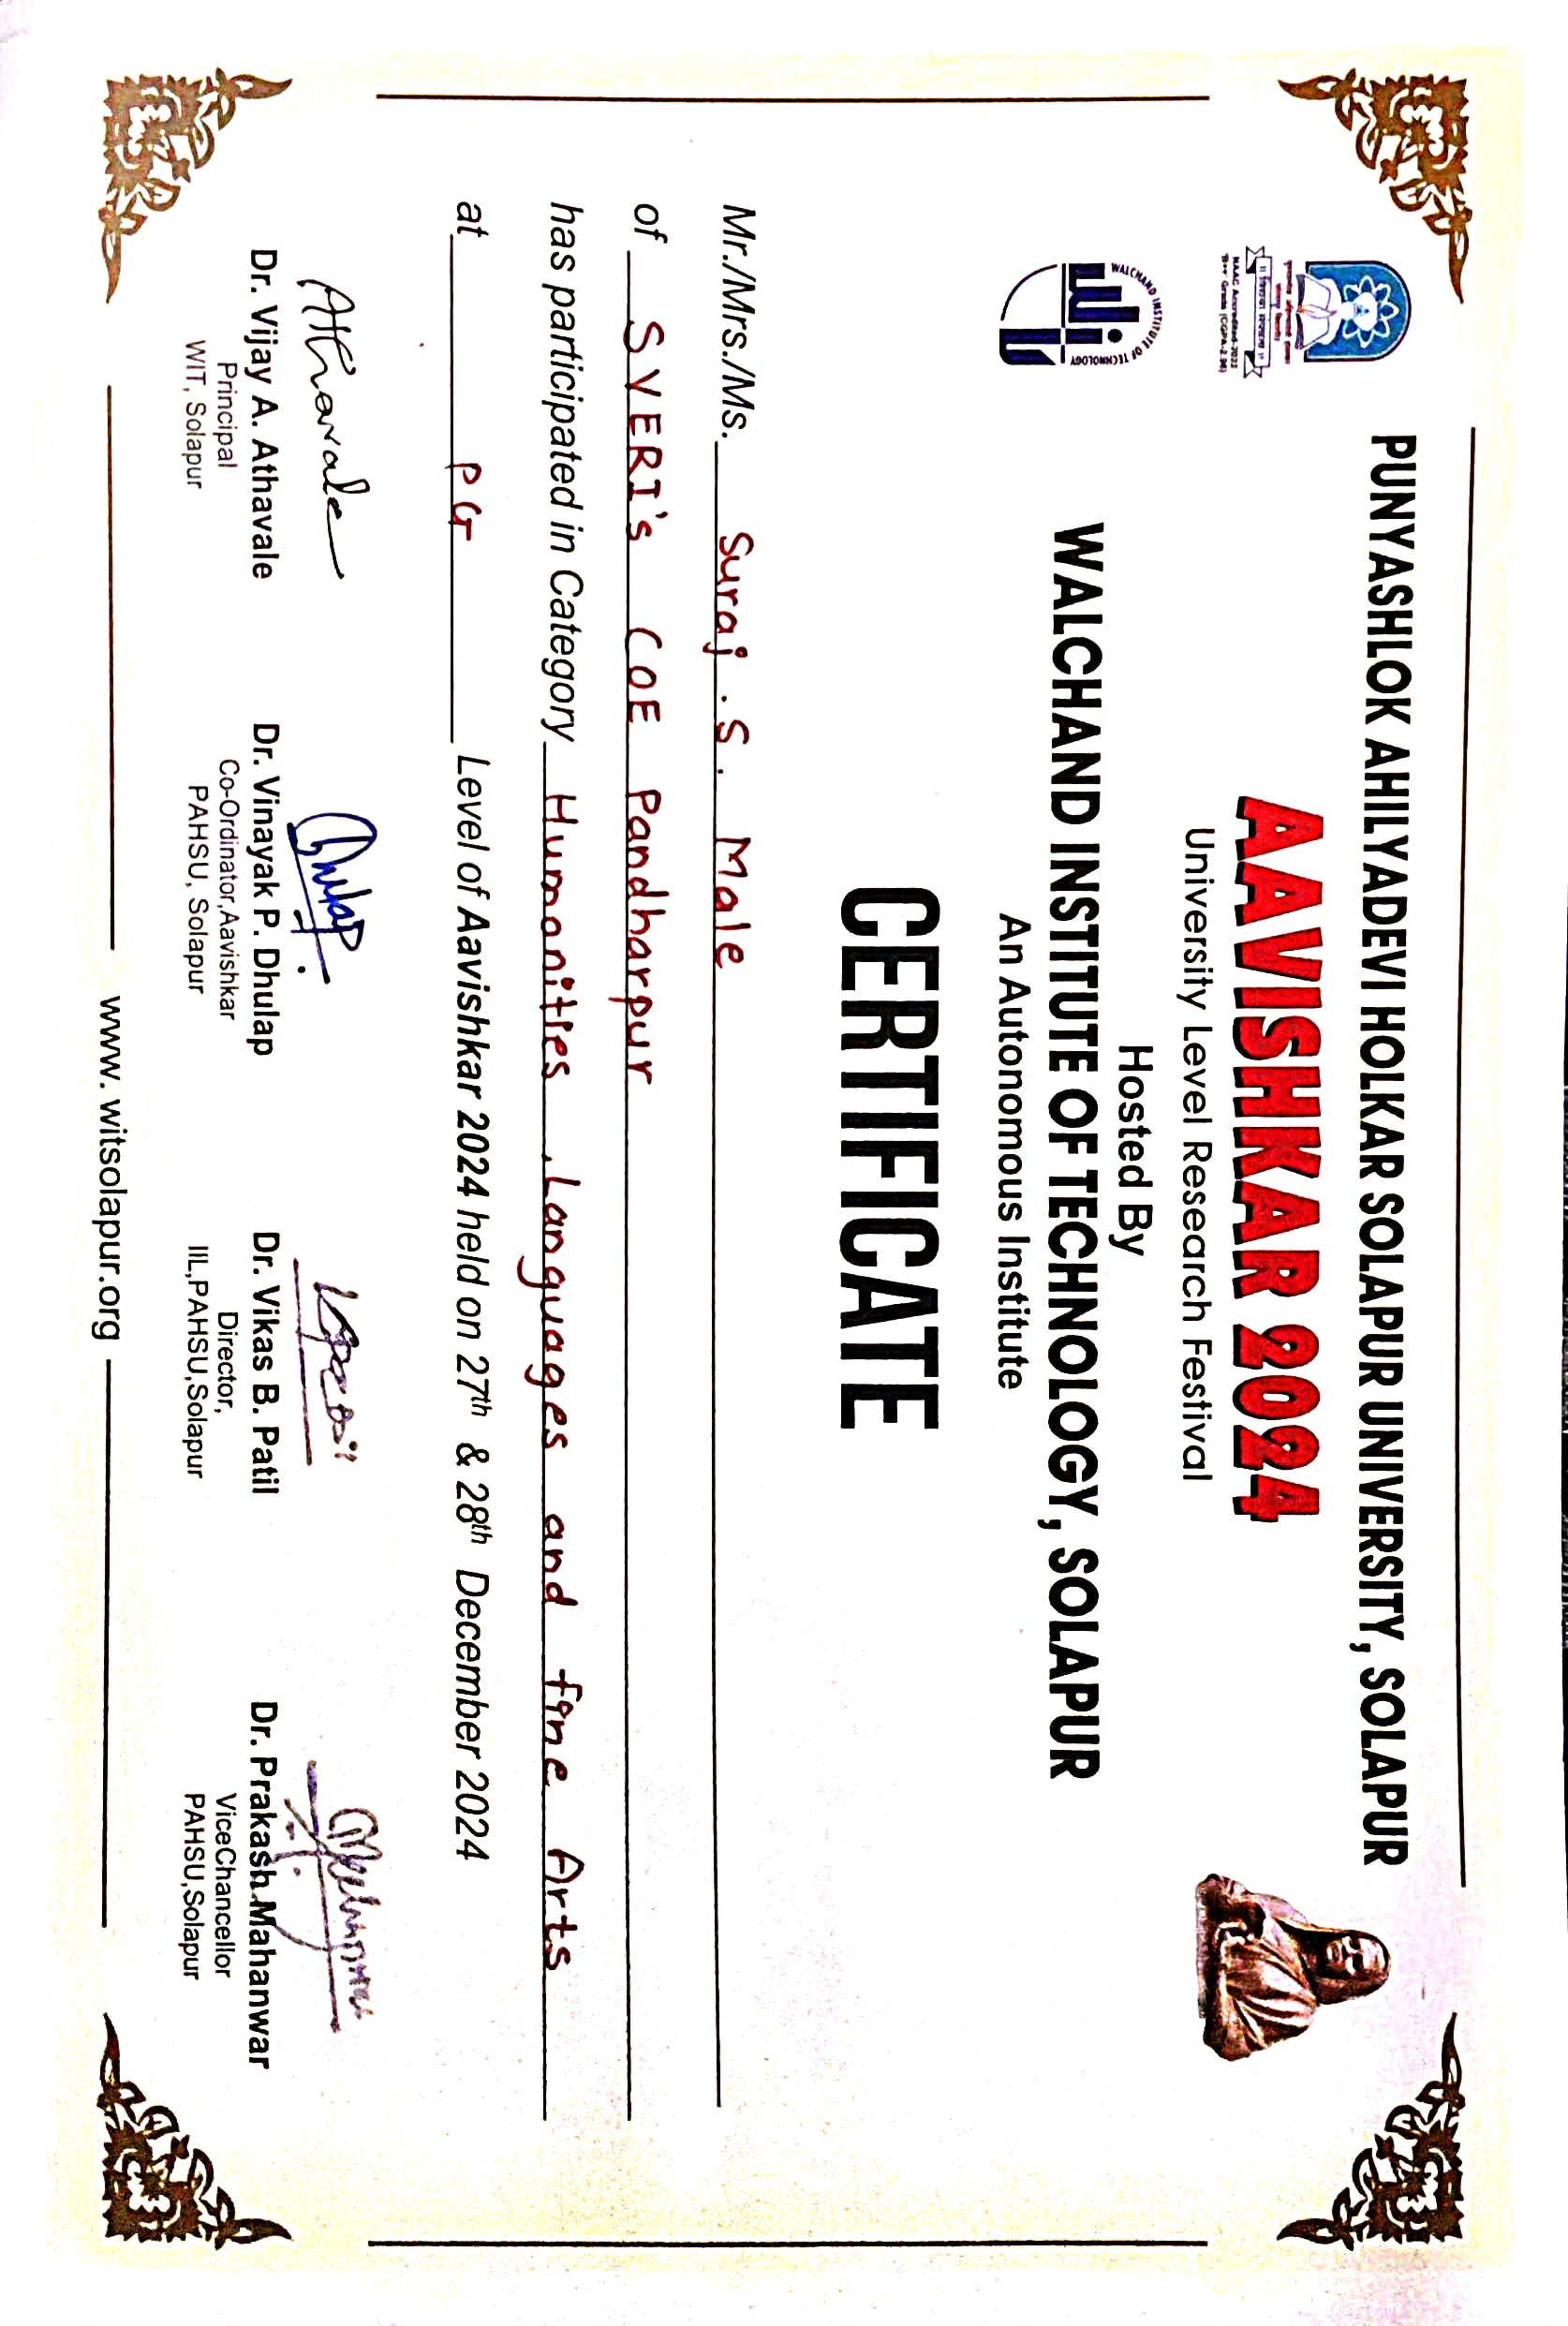 PUNYASHLOK AHILYADEVI HOLKAR SOLAPUR UNIVERSITY, SOLAPUR
AAVISHKAR 2024
University Level Research Festival
NAAC Accredited-2022
'B++' Grade (CGPA-2.96)
Hosted By
WALCHAND INSTITUTE OF TECHNOLOGY, SOLAPUR
An Autonomous Institute
WALCHAND INSTITUTE OF TECHNOLOGY
CERTIFICATE
Mr./Mrs./Ms. Suraj . S. Male
of SVERI's COE Pandharpur
has participated in Category Humanities , Languages and fine Arts
at PG Level of Aavishkar 2024 held on 27th & 28th December 2024
Athavale
Dr. Vijay A. Athavale
Principal
WIT, Solapur
Dr. Vinayak P. Dhulap
Co-Ordinator,Aavishkar
PAHSU, Solapur
Dr. Vikas B. Patil
Director,
IIL,PAHSU,Solapur
Dr. Prakash Mahanwar
ViceChancellor
PAHSU,Solapur
www. witsolapur.org